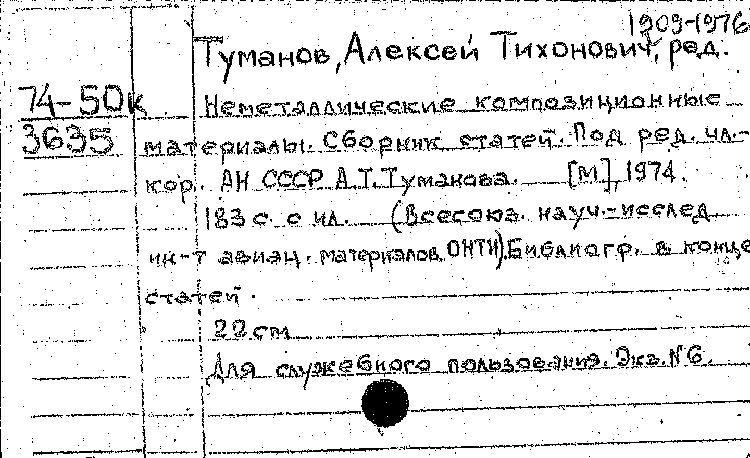 1909-1976
Туманов, Алексей Тихонович, ред.
74-50к Неметаллические композиционные
3635 материалы. Сборник статей. Под ред. чл.-
кор. АН СССР А.Т.Туманова. [М], 1974.
183 с. с ил. (Всесоюз. науч.-исслед
ин-т авиац. материалов. ОНТИ). Библиогр. в конце
статей.
22 см
Для служебного пользования. Экз. №6.